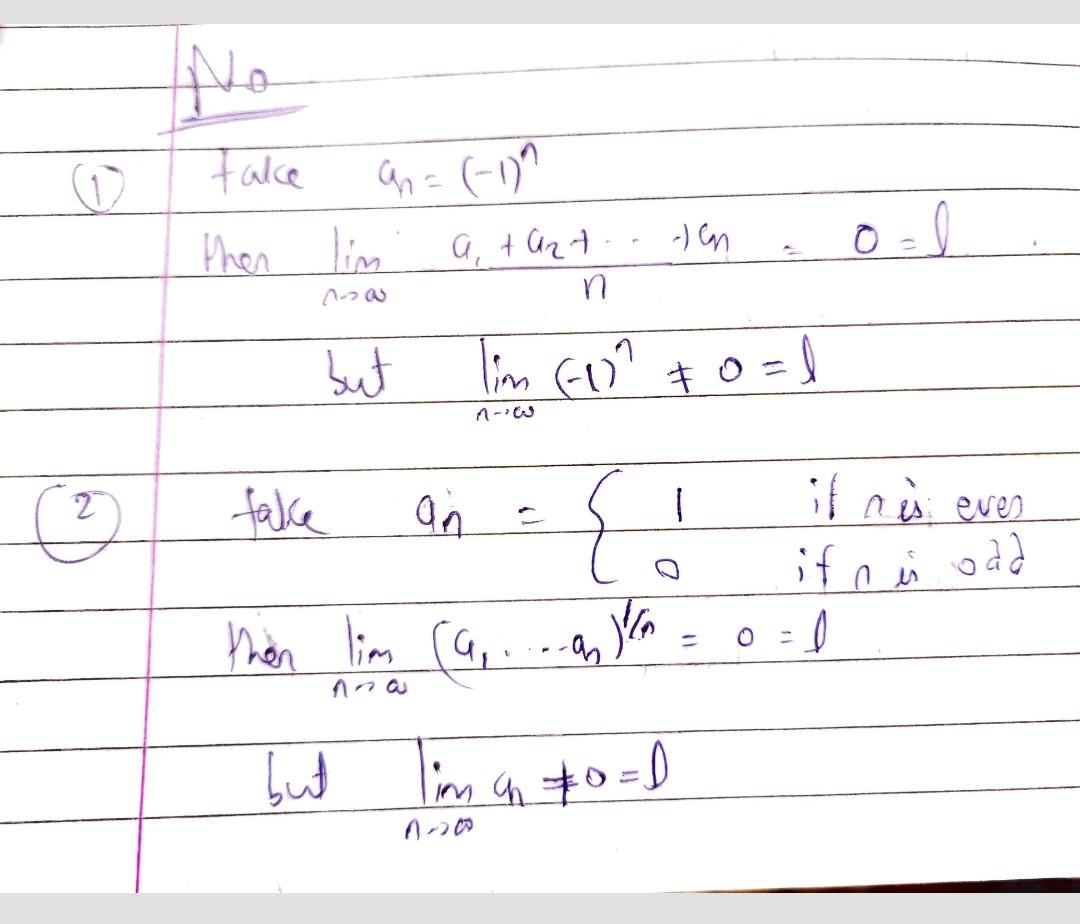 No
① take an = (-1)^n
then lim n→∞ (a1 + a2 + ... + an)/n = 0 = l
but lim n→∞ (-1)^n ≠ 0 = l
② take an = { 1 if n is even
0 if n is odd
then lim n→∞ (a1 .... an)^1/n = 0 = l
but lim n→∞ an ≠ 0 = l